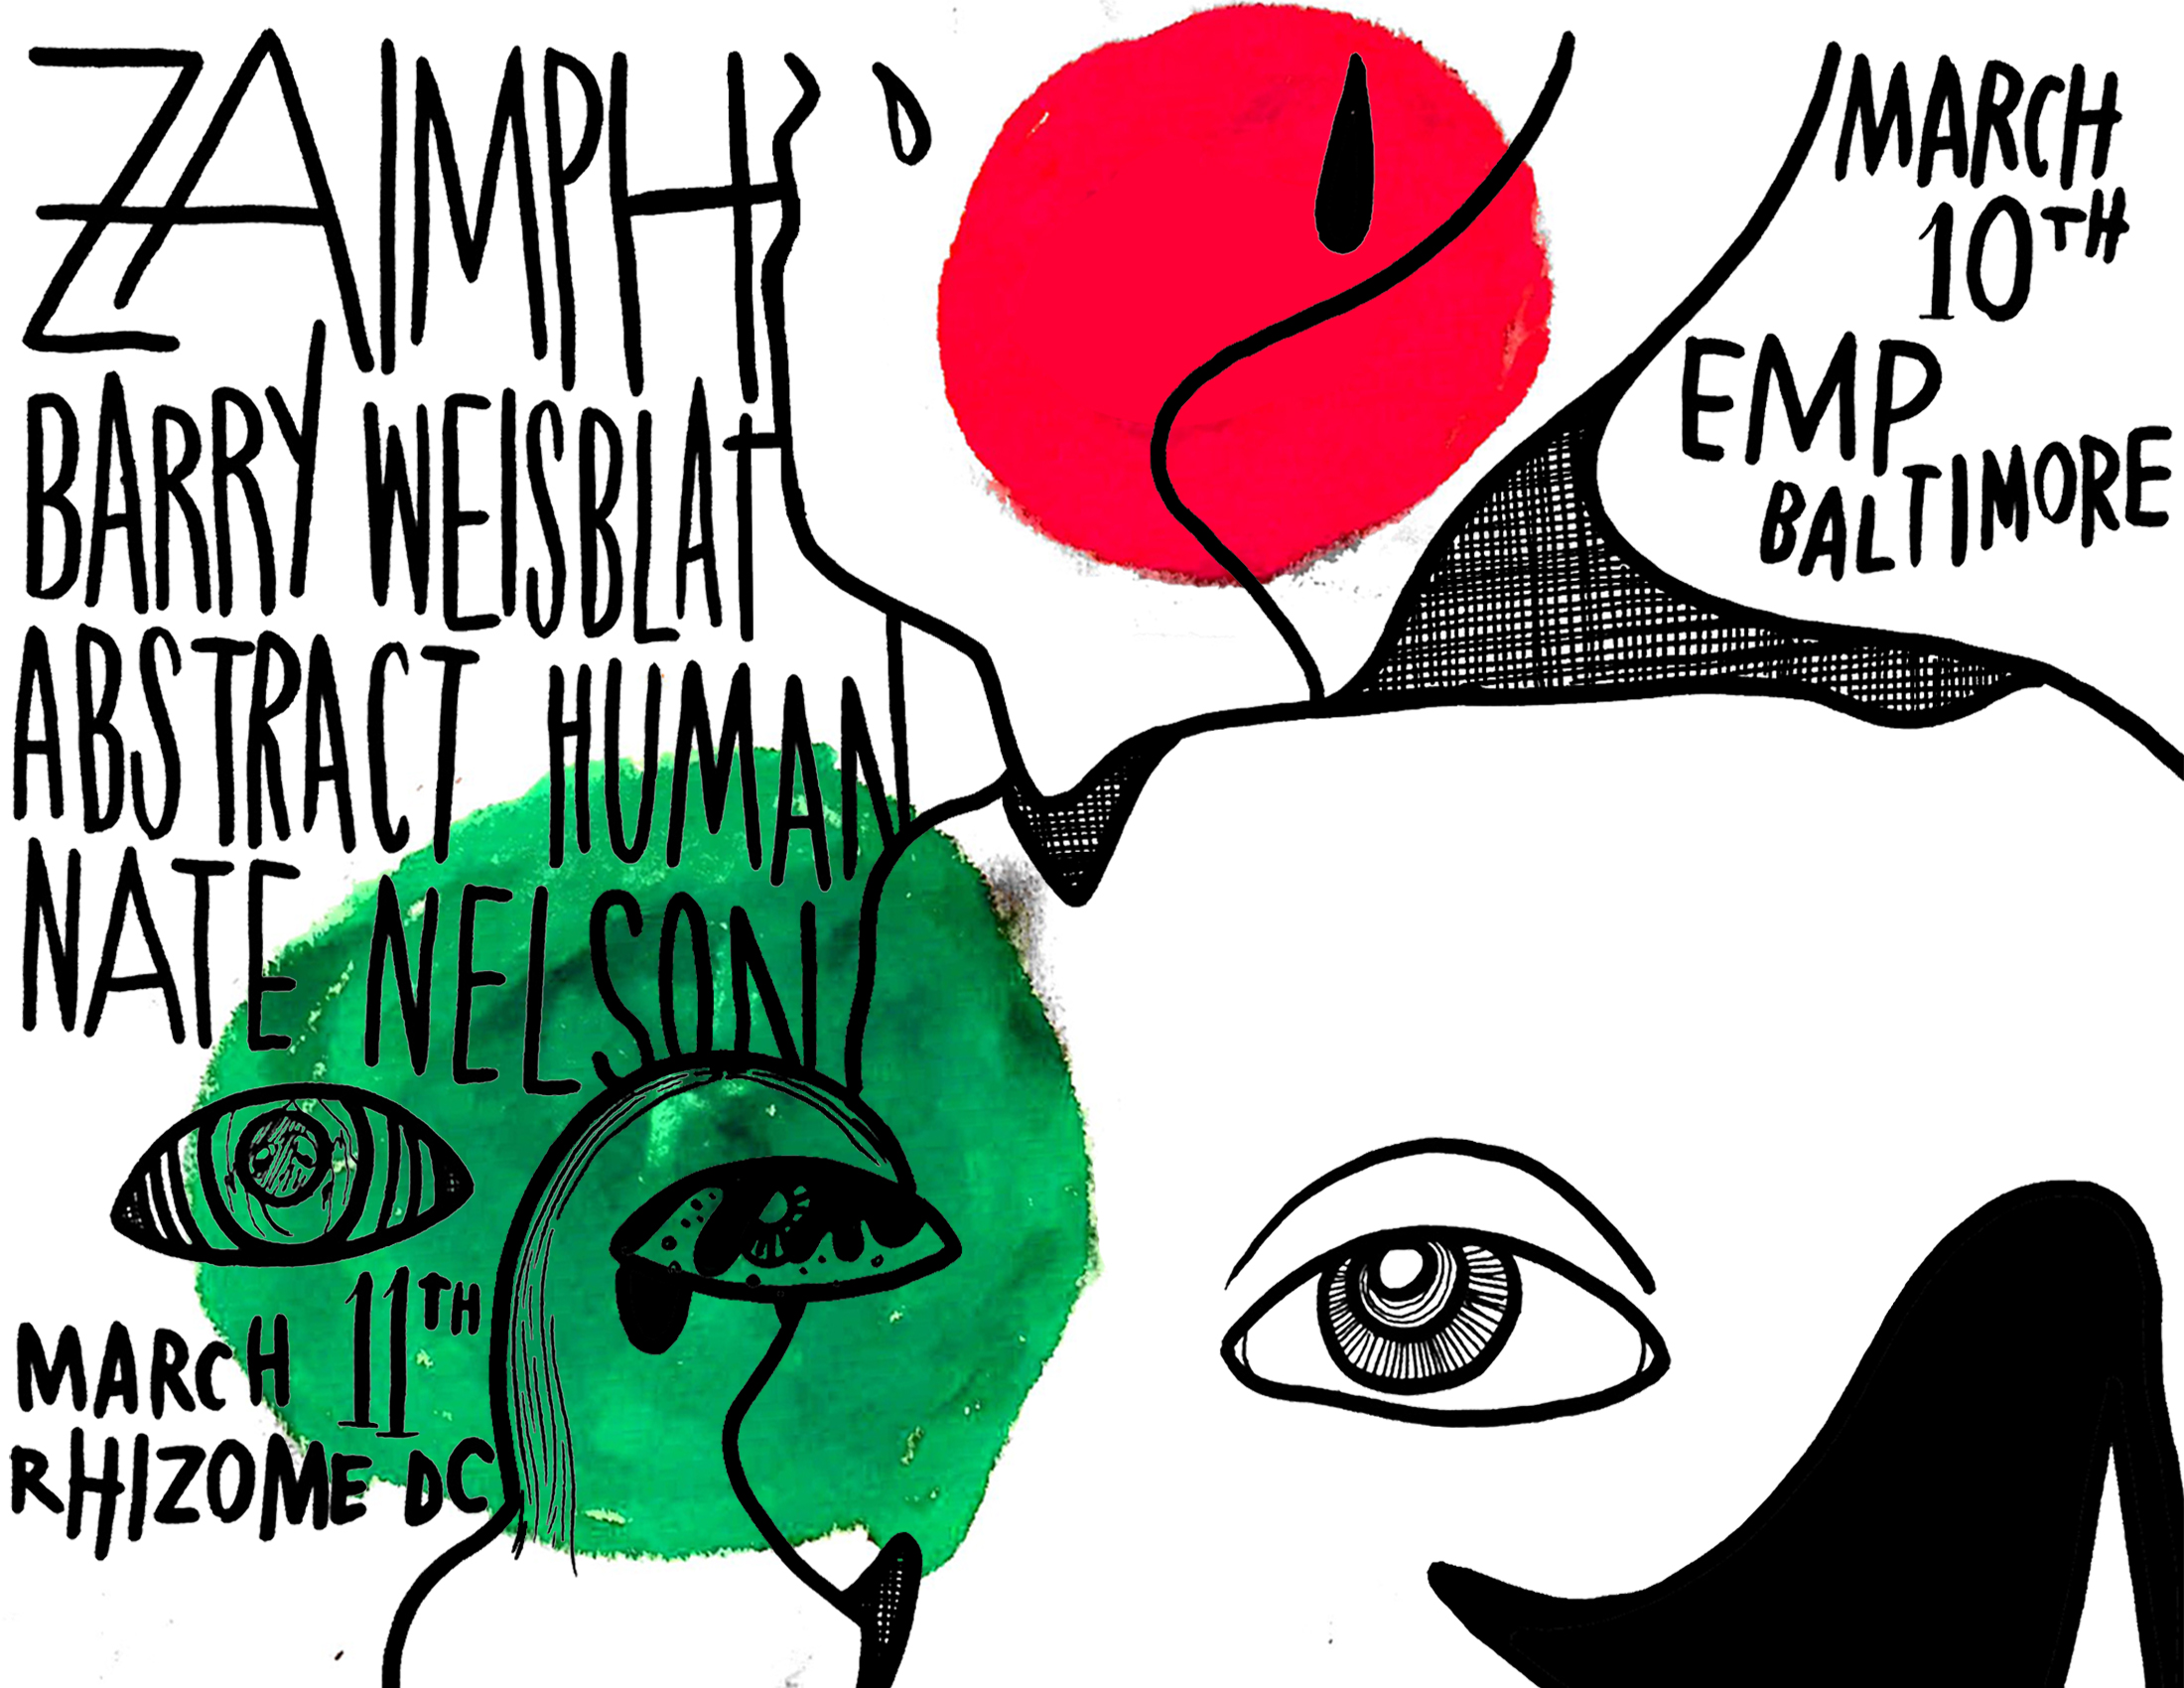 ZAIMPH
BARRY WEISBLAT
ABSTRACT HUMAN
NATE NELSON
MARCH 11TH
RHIZOME DC
MARCH
10TH
EMP
BALTIMORE